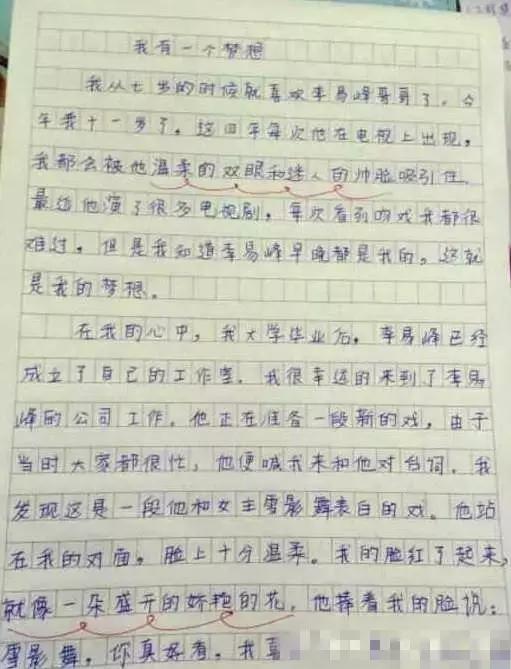 我有一个梦想
我从七岁的时候就喜欢李易峰哥哥了。今
年我十一岁了。这四年每次他在电视上出现，
我都会被他温柔的双眼和迷人的帅脸吸引住。
最近他演了很多电视剧，每次看到吻戏我都很
难过，但是我知道李易峰早晚都是我的，这就
是我的梦想。
在我的心中，我大学毕业后，李易峰已经
成立了自己的工作室。我很幸运的来到了李易
峰的公司工作。他正在准备一段新的戏，由于
当时大家都很忙，他便喊我来和他对台词。我
发现这是一段他和女主雪影舞表白的戏。他站
在我的对面，脸上十分温柔。我的脸红了起来，
就像一朵盛开的娇艳的花，他捧着我的脸说：
雪影舞，你真好看，我喜